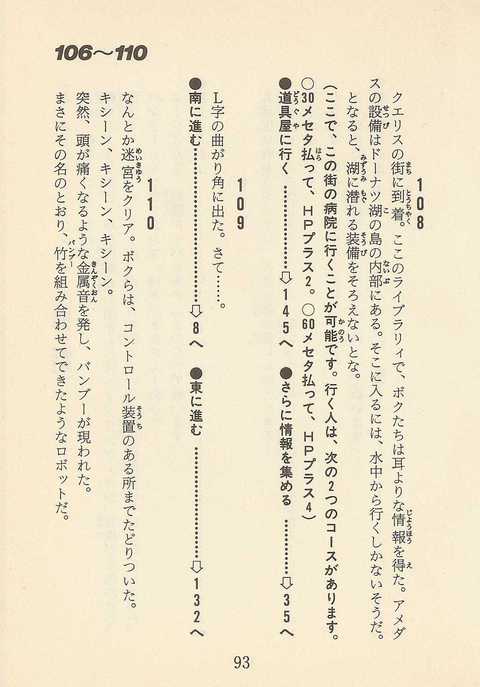 106〜110
108
クエリスの街に到着。ここのライブラリィで、ボクたちは耳よりな情報を得た。アメダ
スの設備はドーナツ湖の島の内部にある。そこに入るには、水中から行くしかないそうだ。
となると、湖に潜れる装備をそろえないとな。
(ここで、この街の病院に行くことが可能です。行く人は、次の2つのコースがあります。
○30メセタ払って、HPプラス2。○60メセタ払って、HPプラス4)
●道具屋に行く ………………⇨145へ ●さらに情報を集める …………⇨35へ
109
L字の曲がり角に出た。さて……。
●南に進む ……………………⇨8へ ●東に進む ……………………⇨132へ
110
なんとか迷宮をクリア。ボクらは、コントロール装置のある所までたどりついた。
キシーン、キシーン、キシーン。
突然、頭が痛くなるような金属音を発し、バンブーが現われた。
まさにその名のとおり、竹を組み合わせてできたようなロボットだ。
93